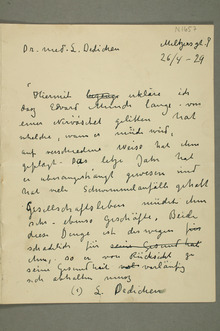 Dr. med. L. Dedichen Meltzers gt. 9
26/4 – 29
Hiermit erkläre ich
dass Edvard Munch lange von
einer Nervosität gelitten hat
welche, wenn er müde wird,
auf verschiedene Weise hat ihn
geplagt. Das letzte Jahr hat
er überangstrengt gewesen und
hat viele Schwindelanfälle gehabt
Gesellschaftsleben müdet ihn
sehr – ebenso Geschäfte. Beide
diese Dinge ist deswegen für
schädlich für seine Gesundheit
ihm, so er von Rücksicht zu
seine Gesundheit vorläufig
sich abhalten muss
(s) L. Dedichen